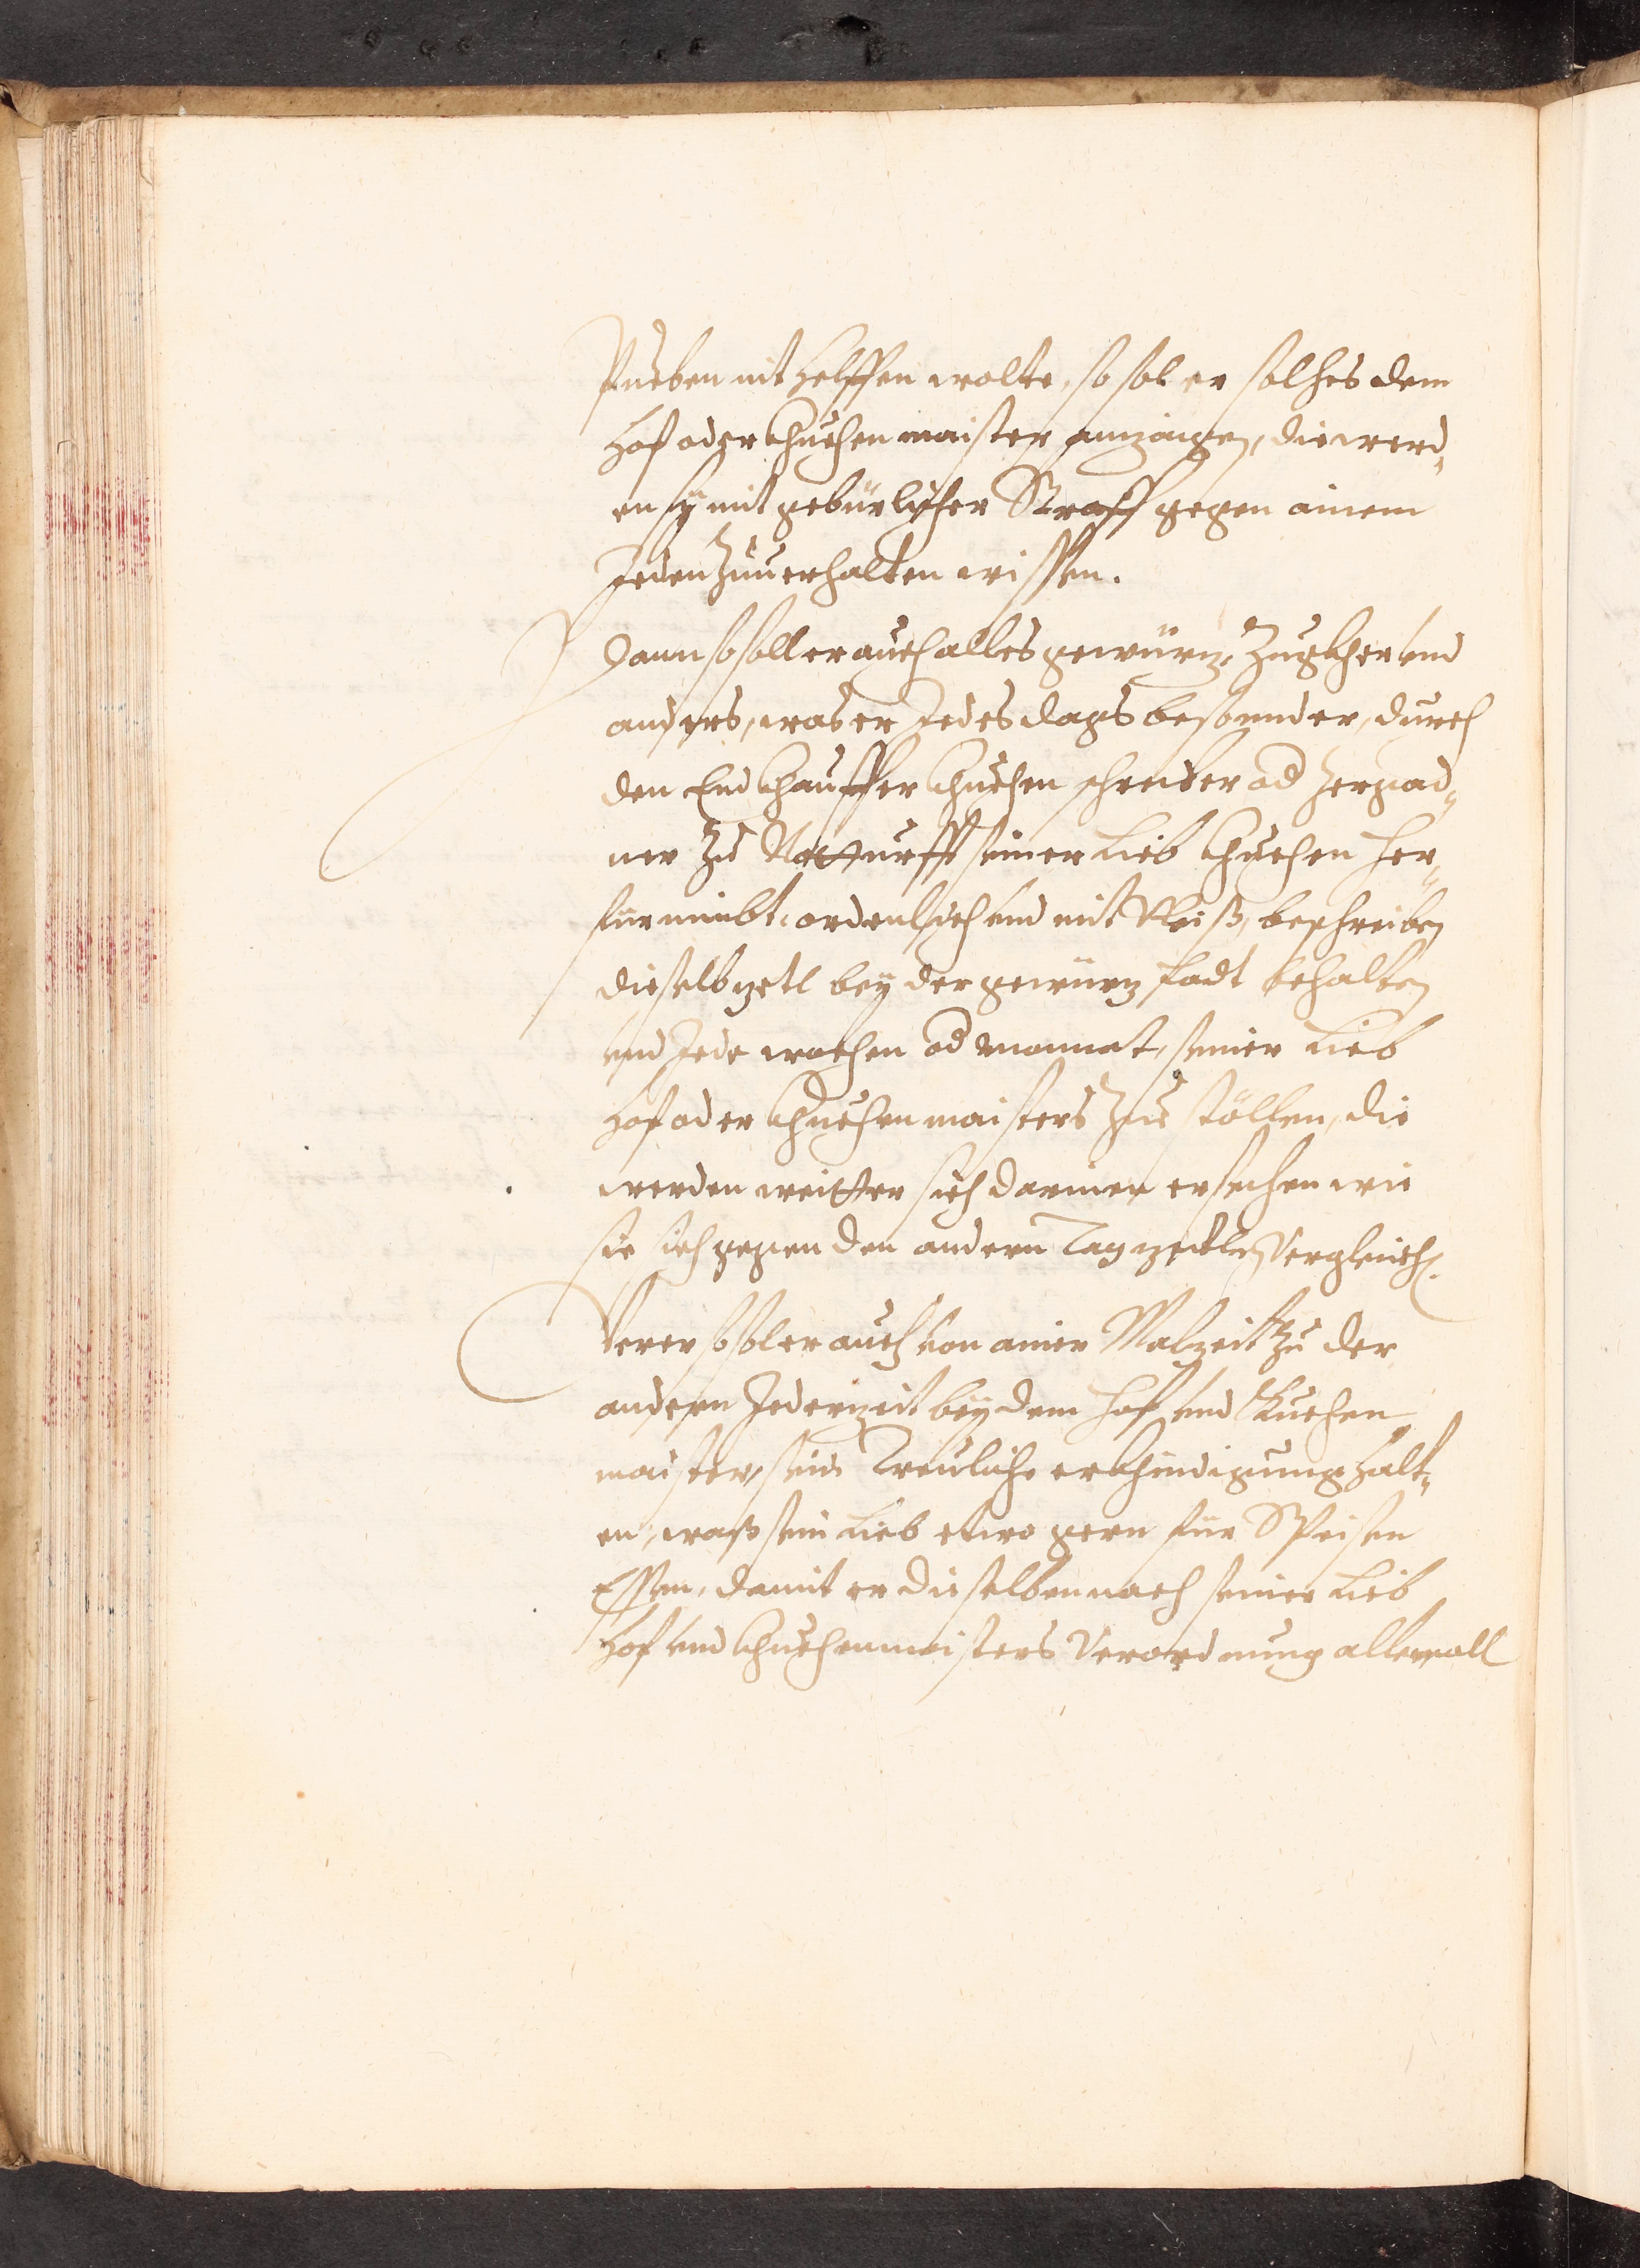 Pueben nit helffen wolte, so sol er solches dem
Hof oder Khuchen maister anzaigen, die werd„
en sy mit gebürlicher Straff gegen ainem
Jeden zuuerhalten wissen.
Dann so soll er auch alles gewürz, Zugkher vnd
anders, was er Jedes dags besonnder, durch
den Einkhauffer Khuchen schreiber od Zergad„
ner zu Notturfft seiner Lieb Khuchen her„
für nimbt, ordenlich vnd mit Vleiß, beschreiben
dieselb zetl bey der gewürz ladt behalten
vnd Jede wochen od monnat, seiner Lieb
Hof oder Khuchen maisters zue stöllen, die
werden weitter sich darinen ersechen wie
sie sich gegen den andern Tag zettlen Vergleichen.
Verer so sol er auch von ainer Malzeit zu der
andern Jederzeit bey dem Hof vnd Khuchen
maister, sein Treuliche erkhundigung halt„
en, waß sein Lieb etwo gern für Speisen
Essen, damit er dieselben nach seiner Lieb
Hof vnd Khuchenmaisters Verordnung allemall